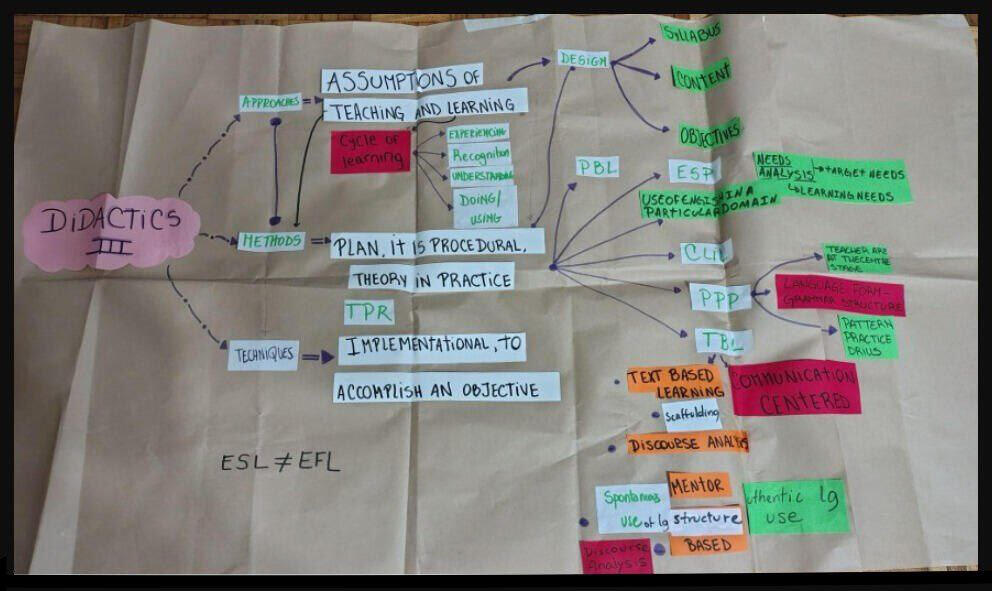 DiDACTiCS
III
APPROACHES
ASSUMPTIONS OF
TEACHING AND LEARNING
Cycle of
learning
EXPERIENCING
Recognition
UNDERSTANDING
DOING/
USING
DESIGN
SYLLABUS
CONTENT
OBJECTIVES
METHODS
PLAN, IT IS PROCEDURAL,
THEORY IN PRACTICE
TPR
PBL
ESP
NEEDS
ANALYSIS
TARGET NEEDS
LEARNING NEEDS
USE OF ENGISH IN A
PARTICULAR DOMAIN
CLIL
PPP
TEACHER ARE
AT THE CENTRE
STAGE
LANGUAGE FORM-
GRAMMAR STRUCTURE
PATTERN
PRACTICE
DRILLS
TBL
COMMUNICATION
CENTERED
TECHNIQUES
IMPLEMENTATIONAL, TO
ACCOMPLISH AN OBJECTIVE
ESL ≠ EFL
TEXT BASED
LEARNING
scaffolding
DISCOURSE ANALYSIS
MENTOR
Spontaneous
use of lg structure
BASED
uthentic lg
use
Discourse
Analysis